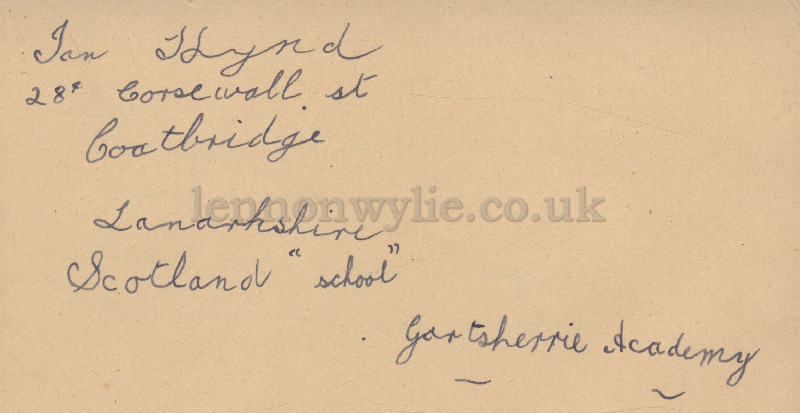 Ian Hynd
28 Corsewall st
Coatbridge
lennonwylie.co.uk
Lanarkshire
Scotland "school"
Gartsherrie Academy